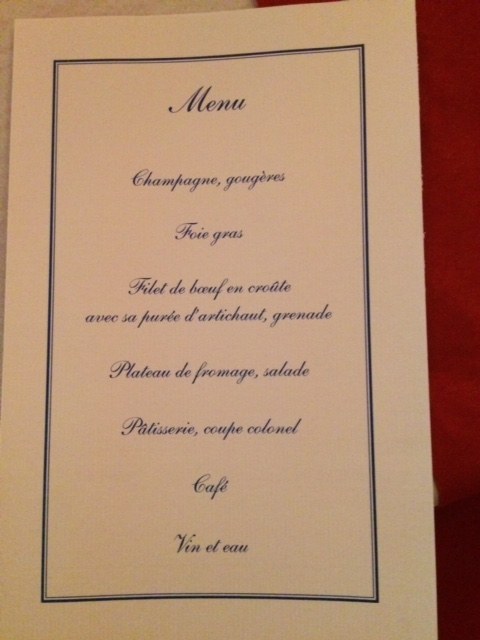 Menu
Champagne, gougères
Foie gras
Filet de bœuf en croûte
avec sa purée d'artichaut, grenade
Plateau de fromage, salade
Pâtisserie, coupe colonel
Café
Vin et eau